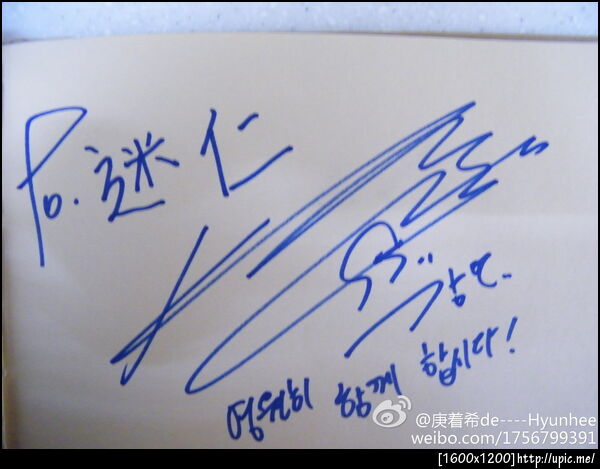 To. 谜仁
강인.
영원히 함께 합시다!
@庚着希de----Hyunhee
weibo.com/1756799391
[1600x1200]http://upic.me/